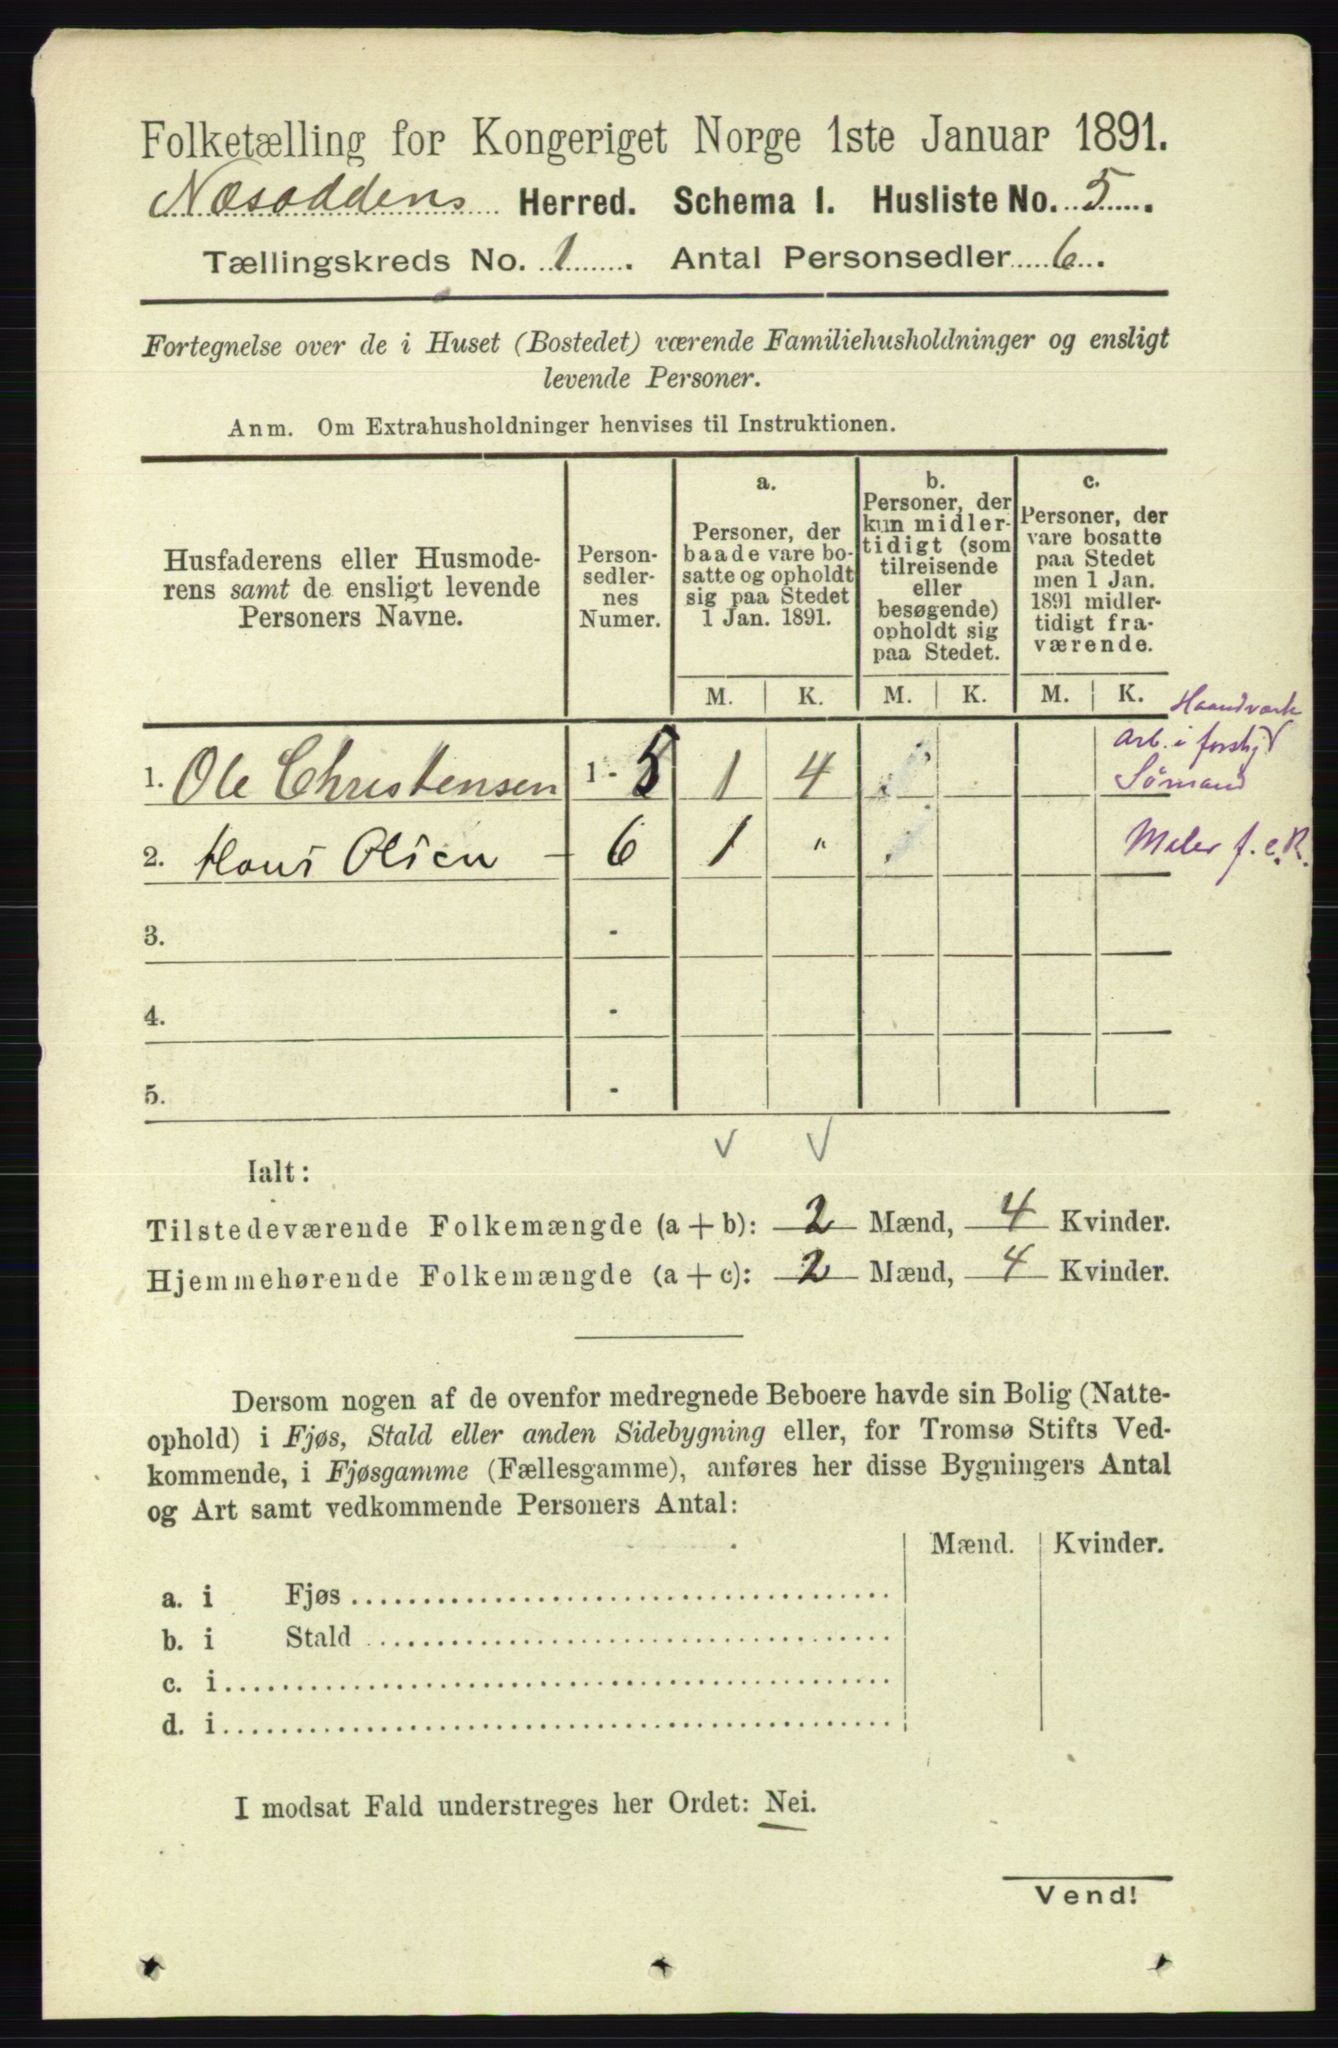 Folketælling for Kongeriget Norge 1ste Januar 1891.
Næsoddens Herred. Schema I. Husliste No. 5.
Tællingskreds No. 1. Antal Personsedler 6.
Fortegnelse over de i Huset (Bostedet) værende Familiehusholdninger og ensligt
levende Personer.
Anm. Om Extrahusholdninger henvises til Instruktionen.
Husfaderens eller Husmode-
rens samt de ensligt levende
Personers Navne.
Person-
sedler-
nes
Numer.
a.
Personer, der
baade vare bo-
satte og opholdt
sig paa Stedet
1 Jan. 1891.
b.
Personer, der
kun midler-
tidigt (som
tilreisende
eller
besøgende)
opholdt sig
paa Stedet.
c.
Personer, der
vare bosatte
paa Stedet
men 1 Jan.
1891 midler-
tidigt fra-
værende.
M. K. M. K. M. K.
Haandværk
Arb. i forskj
Sömand
1. Ole Christensen 1 - 5 1 4
2. Hans Olsen - 6 1 "
Maler f. e. R.
3. -
4. -
5. -
Ialt:
Tilstedeværende Folkemængde (a + b): 2 Mænd, 4 Kvinder.
Hjemmehørende Folkemængde (a + c): 2 Mænd, 4 Kvinder.
Dersom nogen af de ovenfor medregnede Beboere havde sin Bolig (Natte-
ophold) i Fjøs, Stald eller anden Sidebygning eller, for Tromsø Stifts Ved-
kommende, i Fjøsgamme (Fællesgamme), anføres her disse Bygningers Antal
og Art samt vedkommende Personers Antal:
Mænd. Kvinder.
a. i Fjøs
b. i Stald
c. i
d. i
I modsat Fald understreges her Ordet: Nei.
Vend!